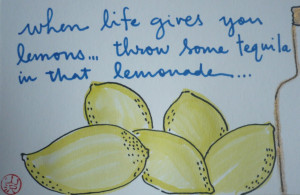 when life gives you
lemons... throw some tequila
in that lemonade...